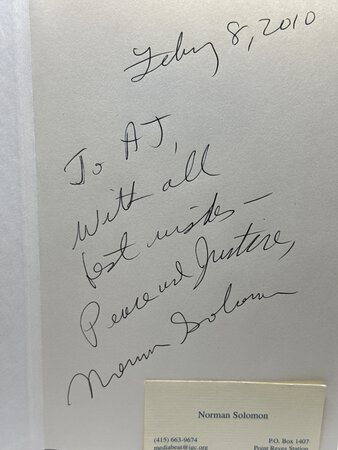 Feby 8, 2010
To AJ,
With all
best wishes —
Peace and Justice,
Norman Solomon
Norman Solomon
(415) 663-9674
P.O. Box 1407
mediabeat@igc.org
Point Reyes Station